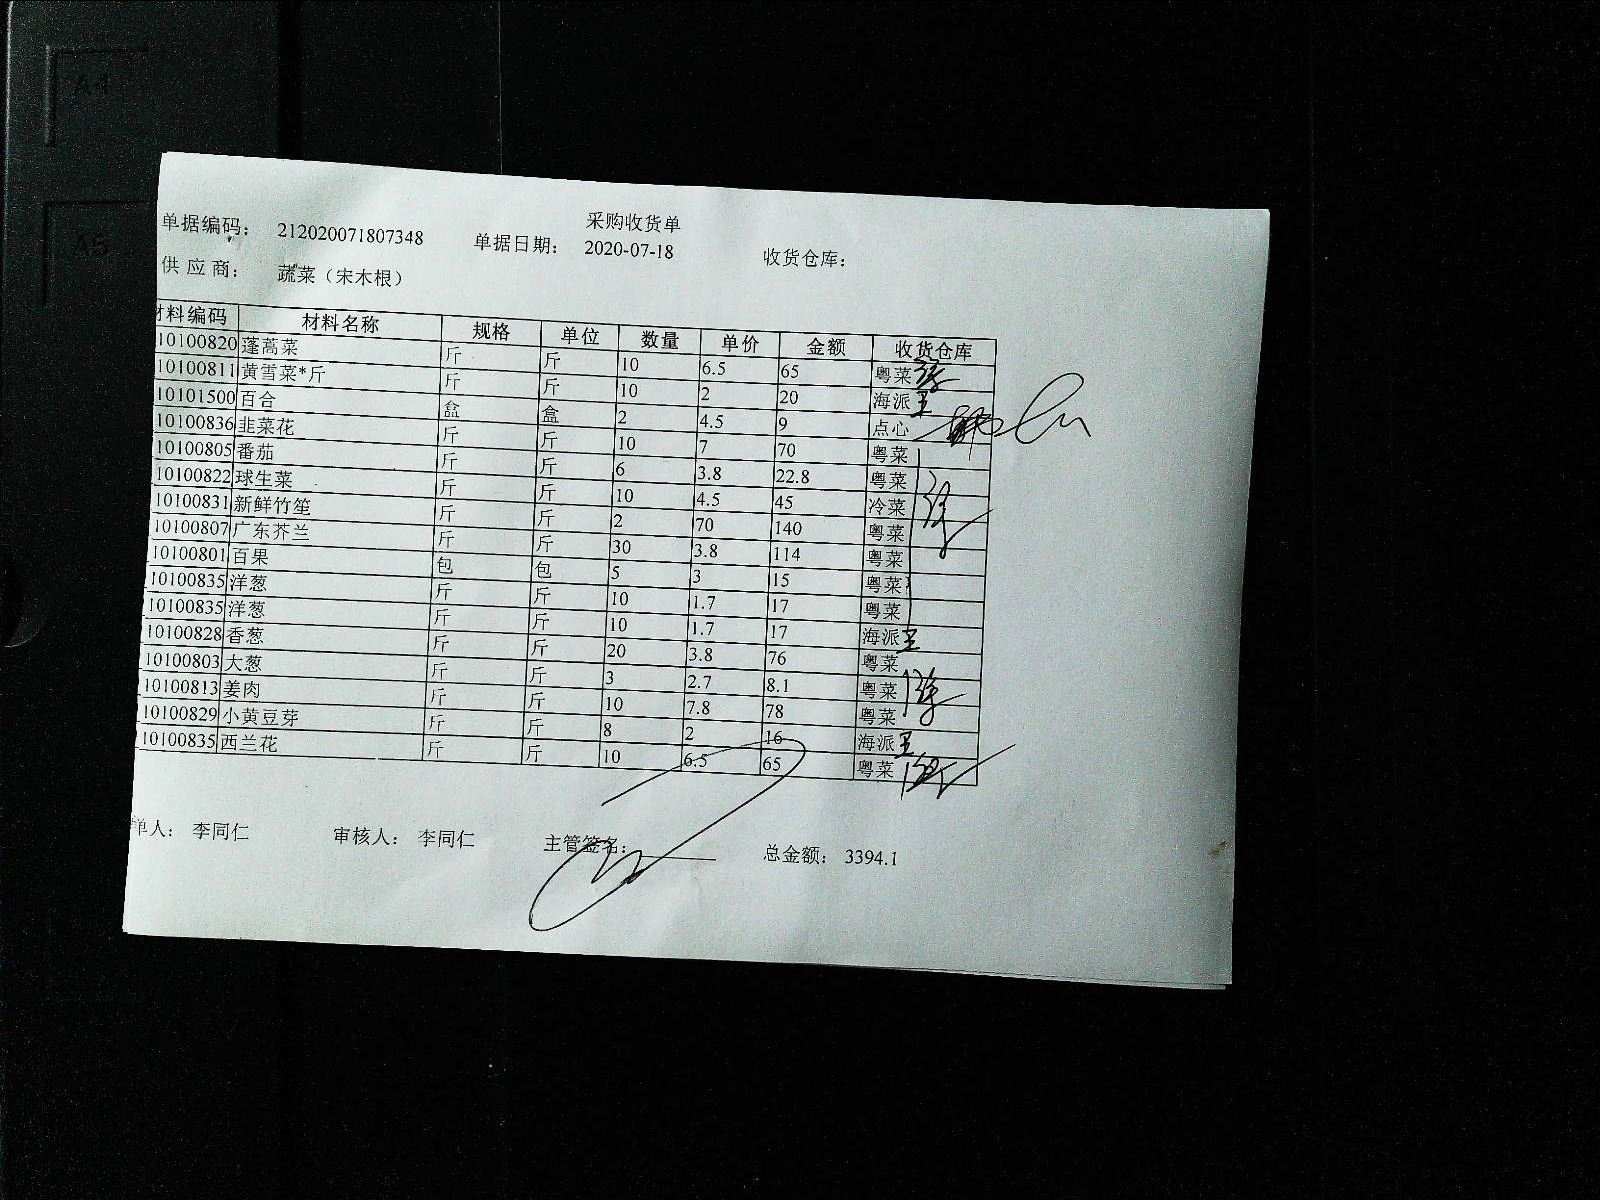 A4
A5
采购收货单
单据编码： 212020071807348 单据日期： 2020-07-18 收货仓库：
供应商： 蔬菜（宋木根）
材料编码 材料名称 规格 单位 数量 单价 金额 收货仓库
10100820 蓬蒿菜 斤 斤 10 6.5 65 粤菜
10100811 黄雪菜*斤 斤 斤 10 2 20 海派 王
10101500 百合 盒 盒 2 4.5 9 点心
10100836 韭菜花 斤 斤 10 7 70 粤菜
10100805 番茄 斤 斤 6 3.8 22.8 粤菜
10100822 球生菜 斤 斤 10 4.5 45 冷菜
10100831 新鲜竹笙 斤 斤 2 70 140 粤菜
10100807 广东芥兰 斤 斤 30 3.8 114 粤菜
10100801 百果 包 包 5 3 15 粤菜
10100835 洋葱 斤 斤 10 1.7 17 粤菜
10100835 洋葱 斤 斤 10 1.7 17 海派 王
10100828 香葱 斤 斤 20 3.8 76 粤菜
10100803 大葱 斤 斤 3 2.7 8.1 粤菜
10100813 姜肉 斤 斤 10 7.8 78 粤菜
10100829 小黄豆芽 斤 斤 8 2 16 海派 王
10100835 西兰花 斤 斤 10 6.5 65 粤菜
单人： 李同仁 审核人： 李同仁 主管签名： 总金额： 3394.1